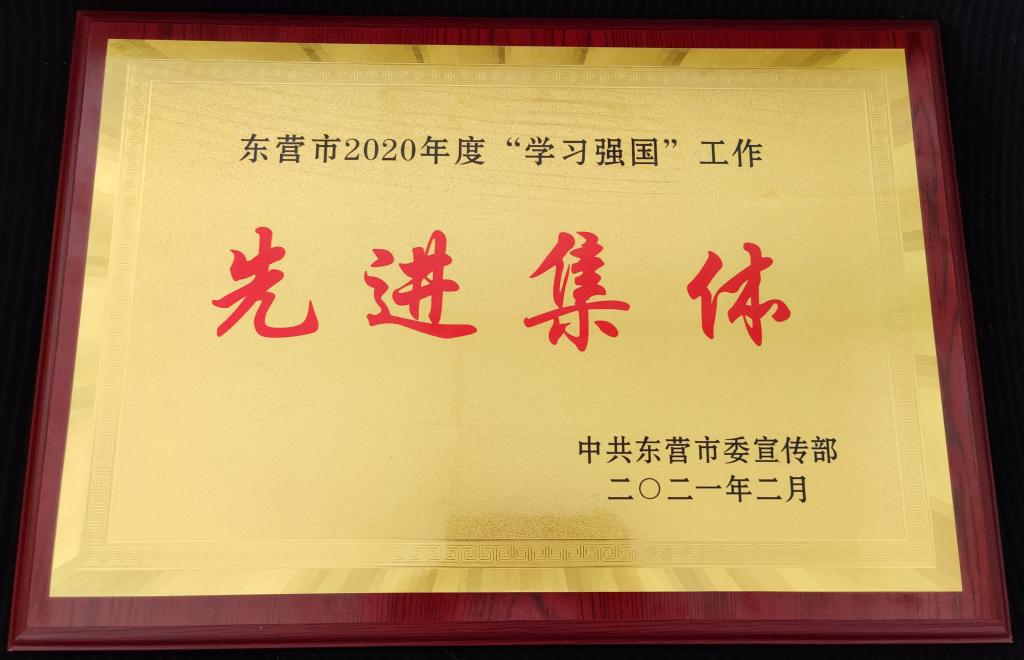 东营市2020年度“学习强国”工作
先进集体
中共东营市委宣传部
二〇二一年二月